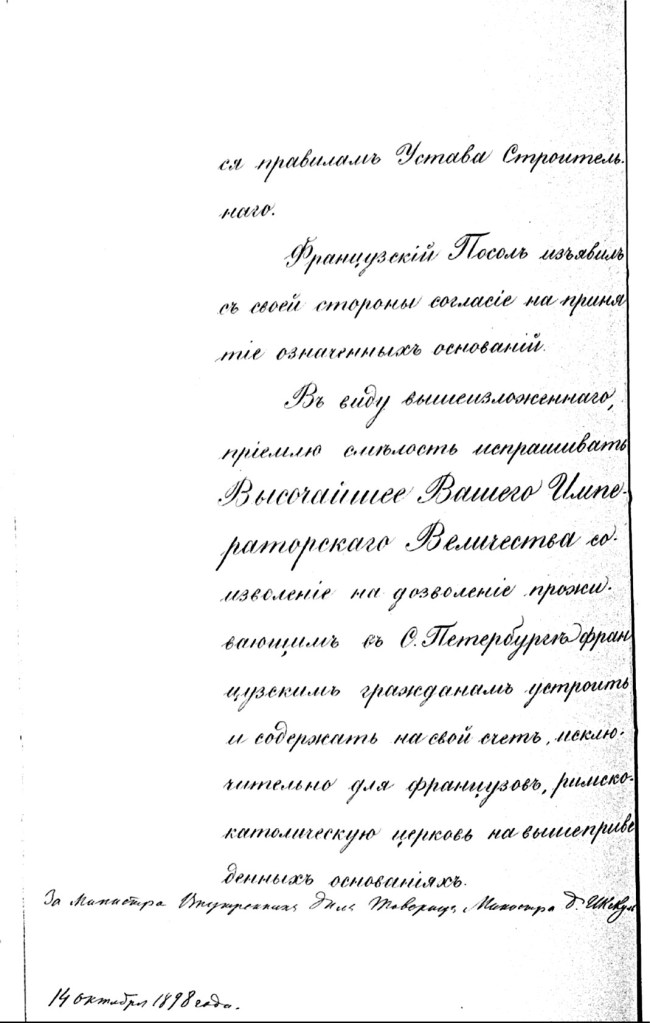 ся правиламъ Устава Строитель-
наго.
Французскій Посолъ изъявилъ
съ своей стороны согласіе на приня
тіе означенныхъ основаній.
Въ виду вышеизложеннаго,
пріемлю смѣлость испрашивать
Высочайшее Вашего Импе-
раторскаго Величества со-
изволеніе на дозволеніе прожи-
вающимъ въ С. Петербургѣ фран
цузскимъ гражданамъ устроить
и содержать на свой счетъ, исклю-
чительно для французовъ, римско-
католическую церковь на вышеприве
денныхъ основаніяхъ.
За Министра Внутреннихъ Дѣлъ Товарищъ Министра
14 октября 1898 года.